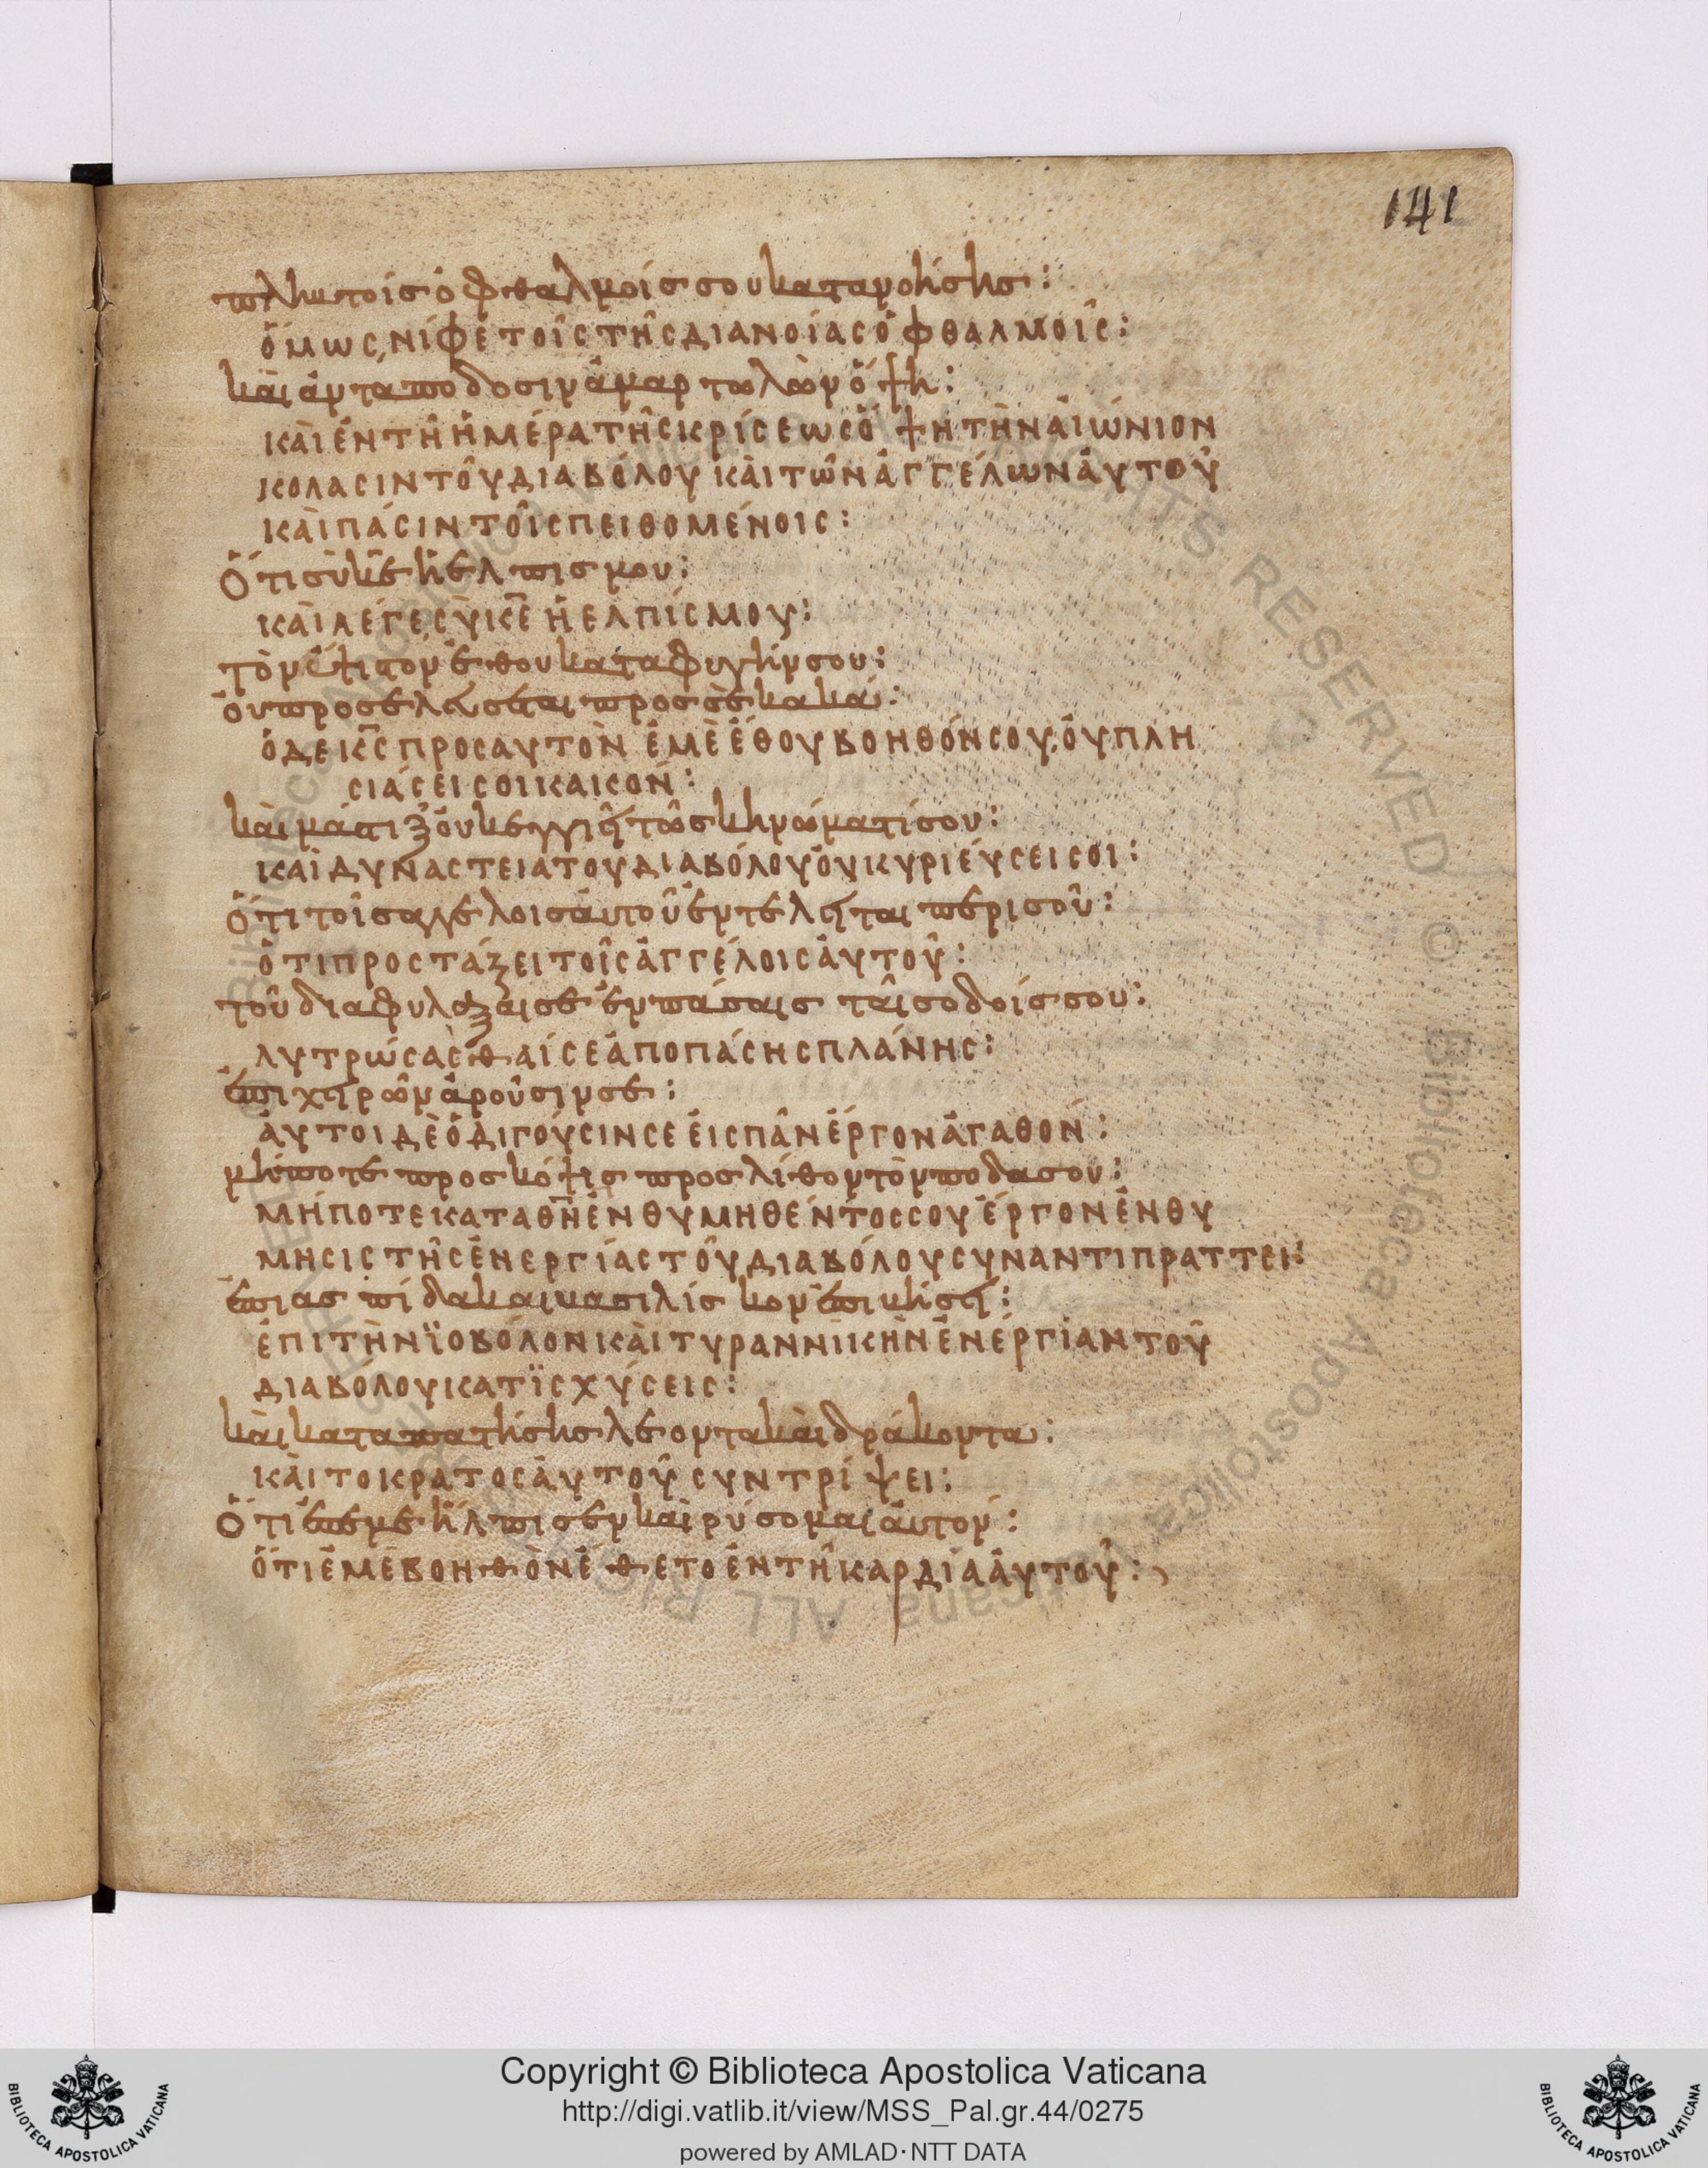 141
πλὴν τοῖς ὀφθαλμοίς σου κατανοήσης:
ὅμως, νίφε τοῖς τῆς διανοίας ὀφθαλμοῖς:
καὶ ἀνταποδοσιν ἁμαρτωλὼν ὄψη:
καὶ ἐν τῆ ἡμέρα τῆς κρίσεως ὄψη τὴν ἀιώνιον
κολασιν τοῦ διαβόλου καὶ τῶν ἀγγέλων ἀυτοῦ
καὶ πάσιν τοῖς πειθομένοις:
Ὅτι σὺ κε ἡ ελπις μου:
καὶ λέγε, σὺ κε ἡ ελπίς μου:
τὸν ὕψιστον ἔθου καταφυγήν σου:
ὀυ προσελέυσεται προς σὲ κακά:
ὁ δε κς προς αυτὸν ἐμὲ ἔθου βοηθόν σου, ὀυ πλη
σιάσει σοι κακόν:
καὶ μάστιξ ὀυκ εγγιεῖ τῶ σκηνώματί σου:
καὶ δυναστεια του διαβόλου ὀυ κυριέυσει σοι:
Ὅτι τοῖς αγγελοις ἀυτοῦ ἐντελεῖται περι σοῦ:
ὅτι προστάξει τοῖς ἀγγέλοις ἀυτοῦ:
τοῦ διαφυλαξαι σε ἐν πάσαις ταῖς οδοίς σου:
λυτρώσασθαί σε ἀπο πάσης πλάνης:
ἐπι χειρῶν ἀροῦσιν σε:
ἀυτοι δὲ ὁδιγούσιν σε ἐις πᾶν ἔργον ἀγαθον:
μήποτε προσκόψις προς λίθον τὸν ποδα σου:
μήποτε καταθῆ ἐνθυμηθέντος σου ἔργον ἐνθυ
μησις τῆς ἐνεργίας τοῦ διαβόλου συναντιπραττει:
ἐπι ασπίδα και βασιλίσκον ἐπιβήση:
ἐπι τὴν ϊοβόλον καὶ τυραννικὴν ἐνέργιαν τοῦ
διαβόλου κατϊσχύσεις:
καὶ καταπατήσης λεοντα καὶ δράκοντα:
καὶ το κρατος ἀυτοῦ συντρίψει:
Ὅτι ἐπ εμε ἤλπισεν καὶ ρύσομαι ἀυτον:
ὅτι ἐμὲ βοηθὸν ἔθετο ἐν τῆ καρδία ἀυτοῦ:
Copyright © Biblioteca Apostolica Vaticana
http://digi.vatlib.it/view/MSS_Pal.gr.44/0275
powered by AMLAD·NTT DATA
BIBLIOTECA APOSTOLICA VATICANA
BIBLIOTECA APOSTOLICA VATICANA